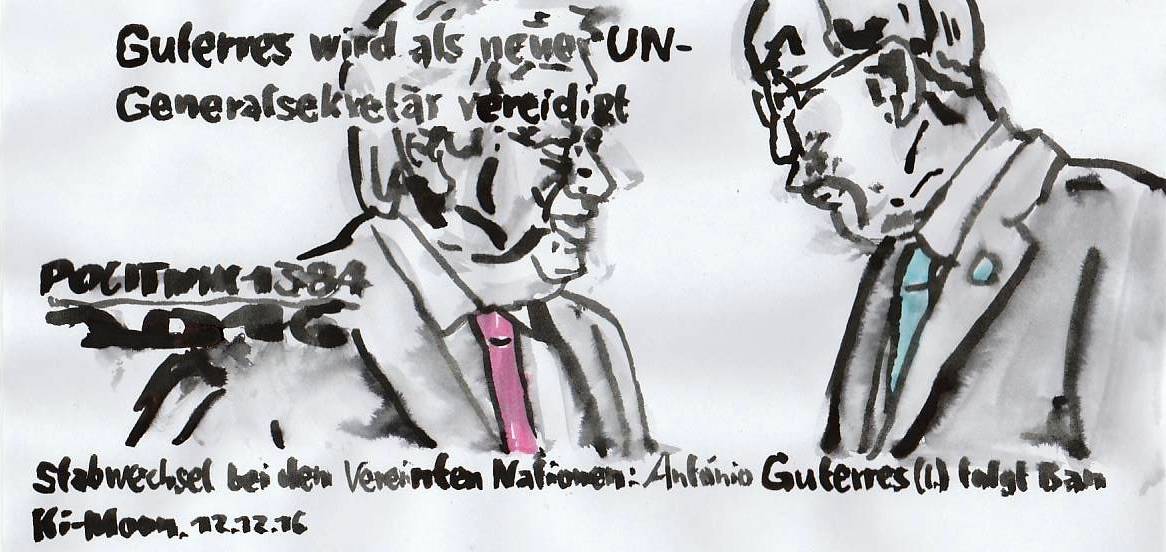 Guterres wird als neuer UN-
Generalsekretär vereidigt
POLITWIK 1384
2016
Stabwechsel bei den Vereinten Nationen: António Guterres (l.) folgt Ban
Ki-Moon, 12.12.16